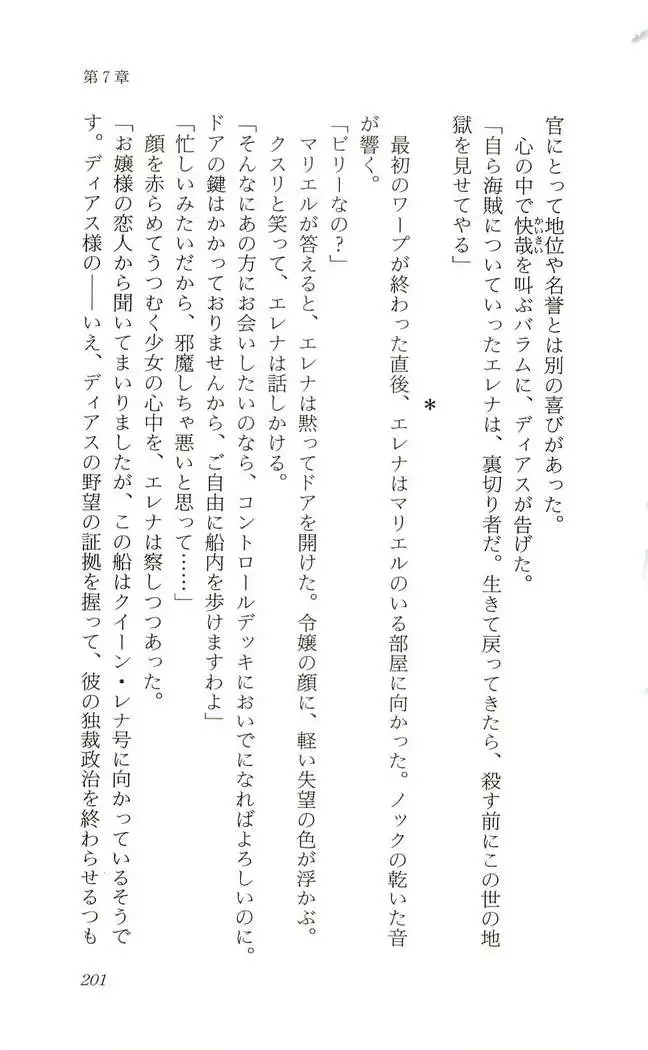 第7章
官にとって地位や名誉とは別の喜びがあった。
心の中で快哉を叫ぶバラムに、ディアスが告げた。
かいさい
「自ら海賊についていったエレナは、裏切り者だ。生きて戻ってきたら、殺す前にこの世の地
獄を見せてやる」
*
最初のワープが終わった直後、エレナはマリエルのいる部屋に向かった。ノックの乾いた音
が響く。
「ビリーなの?」
マリエルが答えると、エレナは黙ってドアを開けた。令嬢の顔に、軽い失望の色が浮かぶ。
クスリと笑って、エレナは話しかける。
「そんなにあの方にお会いしたいのなら、コントロールデッキにおいでになればよろしいのに。
ドアの鍵はかかっておりませんから、ご自由に船内を歩けますわよ」
「忙しいみたいだから、邪魔しちゃ悪いと思って……」
顔を赤らめてうつむく少女の心中を、エレナは察しつつあった。
「お嬢様の恋人から聞いてまいりましたが、この船はクイーン・レナ号に向かっているそうで
す。ディアス様の――いえ、ディアスの野望の証拠を握って、彼の独裁政治を終わらせるつも
201